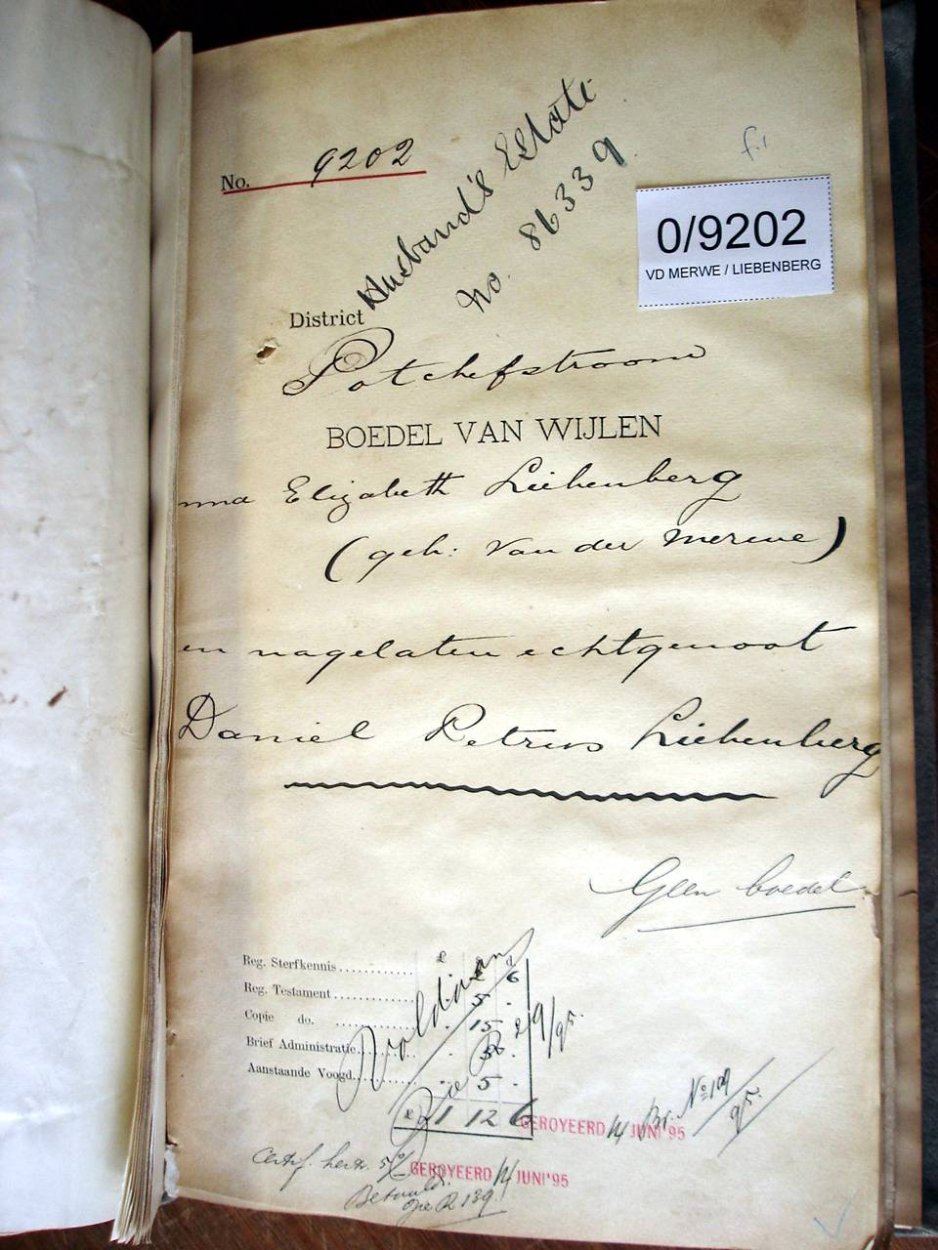 No. 9202
Husband's Estate
No. 86339
f.1
0/9202
VD MERWE / LIEBENBERG
District
Potchefstroom
BOEDEL VAN WIJLEN
nna Elizabeth Liebenberg
(geb: Van der Merwe)
en nagelaten echtgenoot
Daniel Petrus Liebenberg
Geen boedel
£ d
Reg. Sterfkennis 6
Reg. Testament 5 -
Copie do. 15
Brief Administratie 5 -
Aanstaande Voogd 5 -
£ 1 12 6
Voldaan
9/95.
GEROYEERD 14 JUNI '95
Br. No 109
95.
Certif. 5/
GEROYEERD 14 JUNI '95
Betaald
R 139